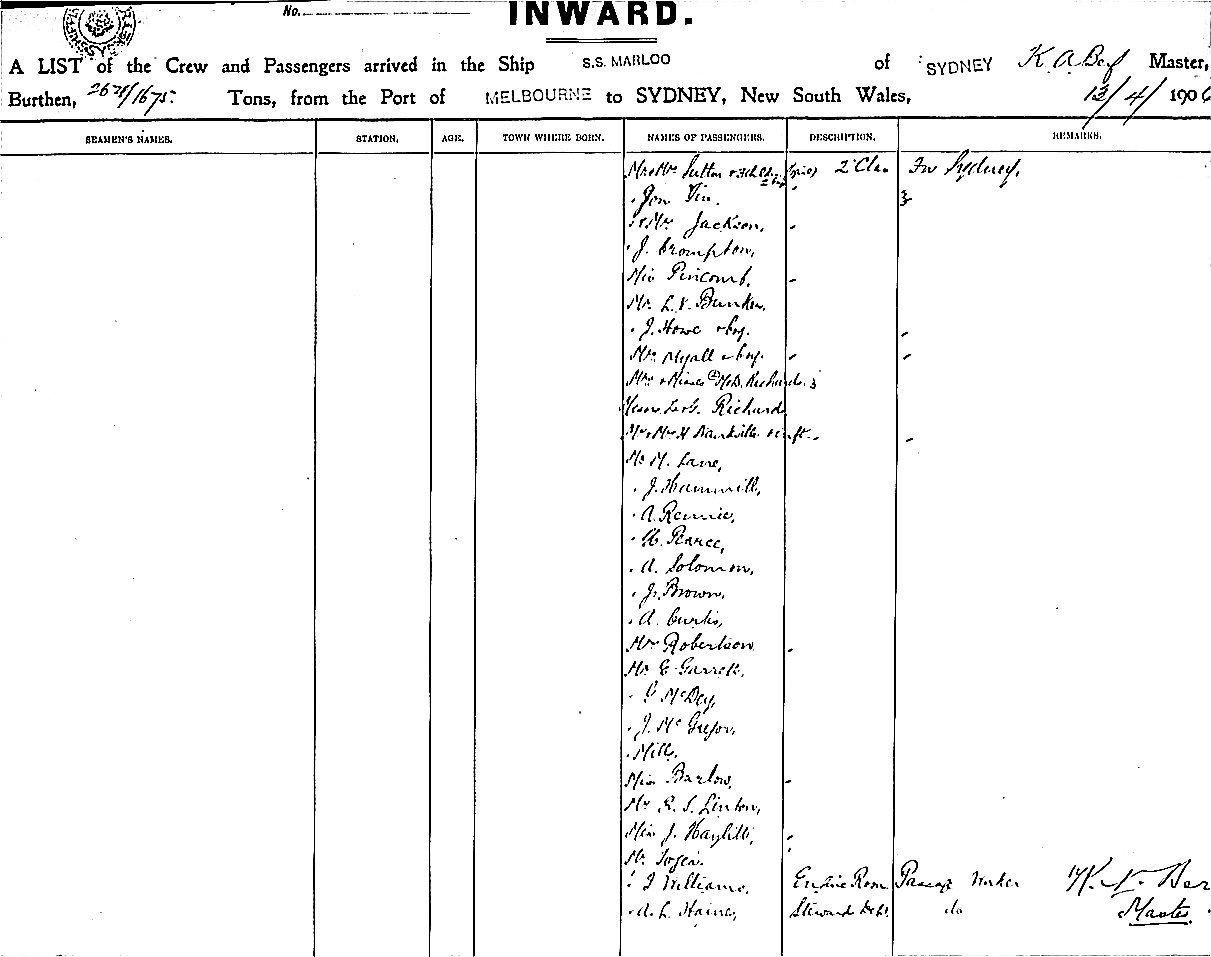 No.
INWARD.
A LIST of the Crew and Passengers arrived in the Ship S.S. MARLOO of SYDNEY K. A. Master,
Burthen, 2628/1675 Tons, from the Port of MELBOURNE to SYDNEY, New South Wales, 13/4/1906
SEAMEN'S NAMES. STATION. AGE. TOWN WHERE BORN. NAMES OF PASSENGERS. DESCRIPTION. REMARKS.
Mr & Mrs Sutton & 3 2 Clas For Sydney.
" Jon
" & Mrs Jackson,
" J. Crompton,
Miss Pincomb,
Mr L. V. Bunker,
" J. Howe & boy.
Mrs Myall & boy.
Mrs & Misses Richards.
Messrs Richard
Mr & Mrs H & inft.
Mr M. Lane,
" J. Hammill,
" A. Rennie,
" Pearce,
" A. Solomon,
" J. Brown,
" A. Curtis,
Mrs Robertson
Mr Garrett,
" McDey,
" J. McGregor,
" Mills,
Miss Barlow,
Mr R. S. Linton,
Miss J.
Mr
" J Williams, Engine Room Passage Worker
" A. L. Haines, Steward Dept. do Master